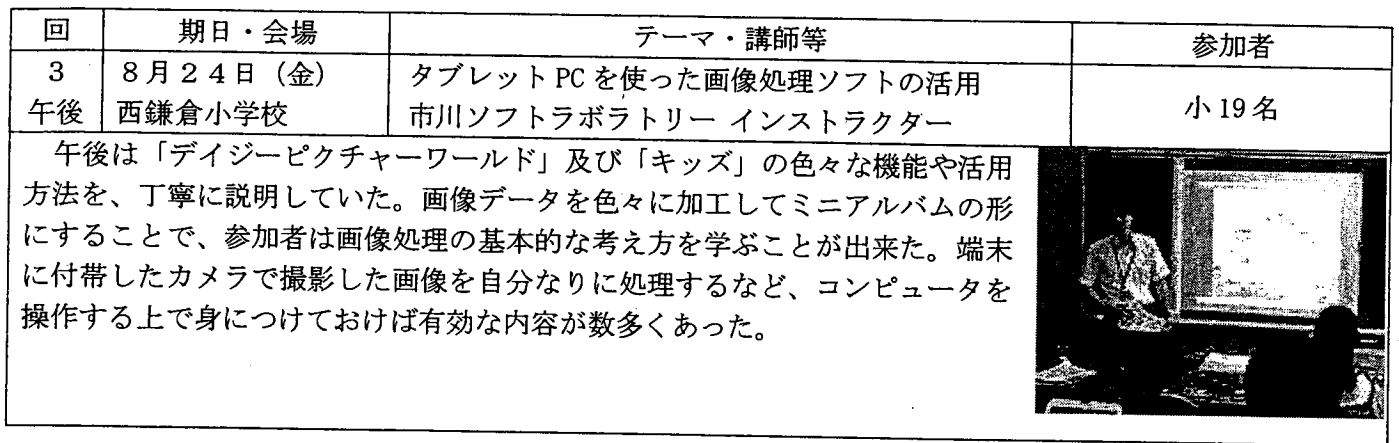 回 期日・会場 テーマ・講師等 参加者
3 8月24日（金） タブレットPCを使った画像処理ソフトの活用 小19名
午後 西鎌倉小学校 市川ソフトラボラトリー インストラクター
午後は「デイジーピクチャーワールド」及び「キッズ」の色々な機能や活用
方法を、丁寧に説明していた。画像データを色々に加工してミニアルバムの形
にすることで、参加者は画像処理の基本的な考え方を学ぶことが出来た。端末
に付帯したカメラで撮影した画像を自分なりに処理するなど、コンピュータを
操作する上で身につけておけば有効な内容が数多くあった。